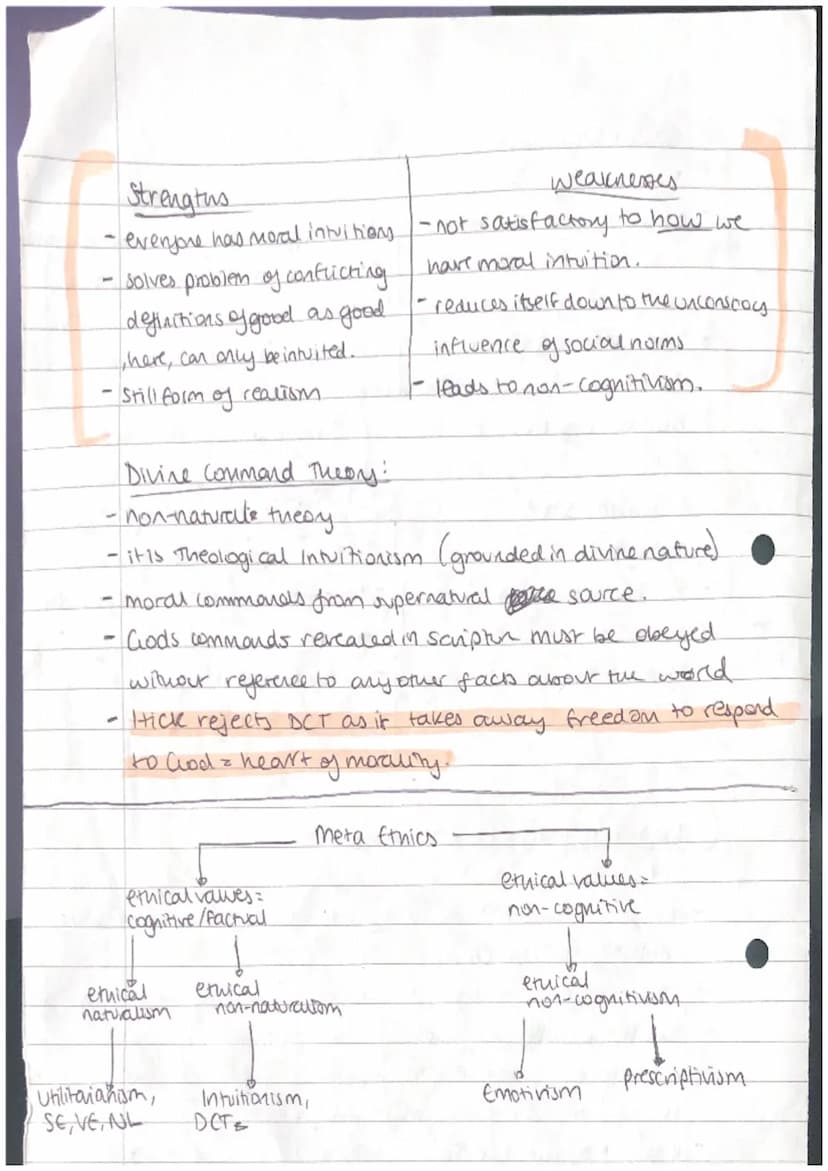 Strengths
- everyone has moral intuitions
- solves problem of conflicting
definitions of good as good
, here, can only be intuited.
- Still form of realism
Weaknesses
- not satisfactory to how we
have moral intuition.
- reduces itself down to the unconscious
influence of social norms
- leads to non-cognitivism.
Divine Command Theory:
- non-naturalist theory
- it is Theological Intuitionism (grounded in divine nature)
- moral commands from supernatural source.
- Gods commands revealed in scripture must be obeyed
without reference to any other facts about the world
- Hick rejects DCT as it takes away freedom to respond
to God = heart of morality.
Meta Ethics
ethical values =
cognitive/factual
ethical values =
non-cognitive
ethical
naturalism
ethical
non-naturalism
ethical
non-cognitivism
Utilitarianism,
SE, VE, NL
Intuitionism,
DCT
Emotivism
Prescriptivism